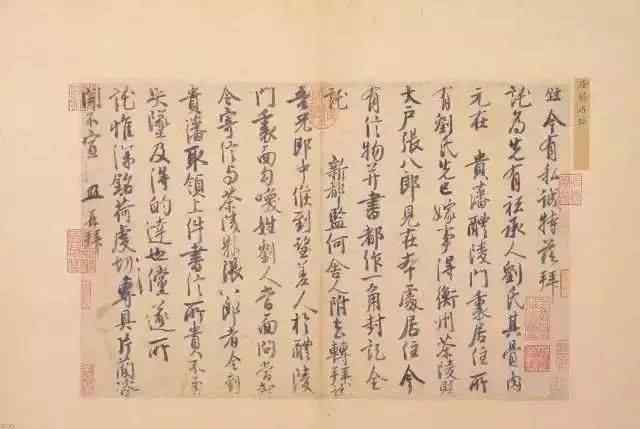 今有私誠特茲拜
託為先有祗承人劉氏其骨肉
元在 貴藩醴陵門裏居住所
有劉氏先已嫁事得衡州茶陵縣
大戶張八郎見在本處居住今
有信物并書都作一角封記全
託 新都監何舍人附去轉拜託
吾兄郎中候到望差人於醴陵
門裏面勾喚姓劉人當面問當却
令寄信与茶陵縣張八郎者令到
貴藩取領上件書信所貴不至
失墜及得的達也儻遂所
託惟深銘荷虔切專具片簡咨
聞不宣 再拜